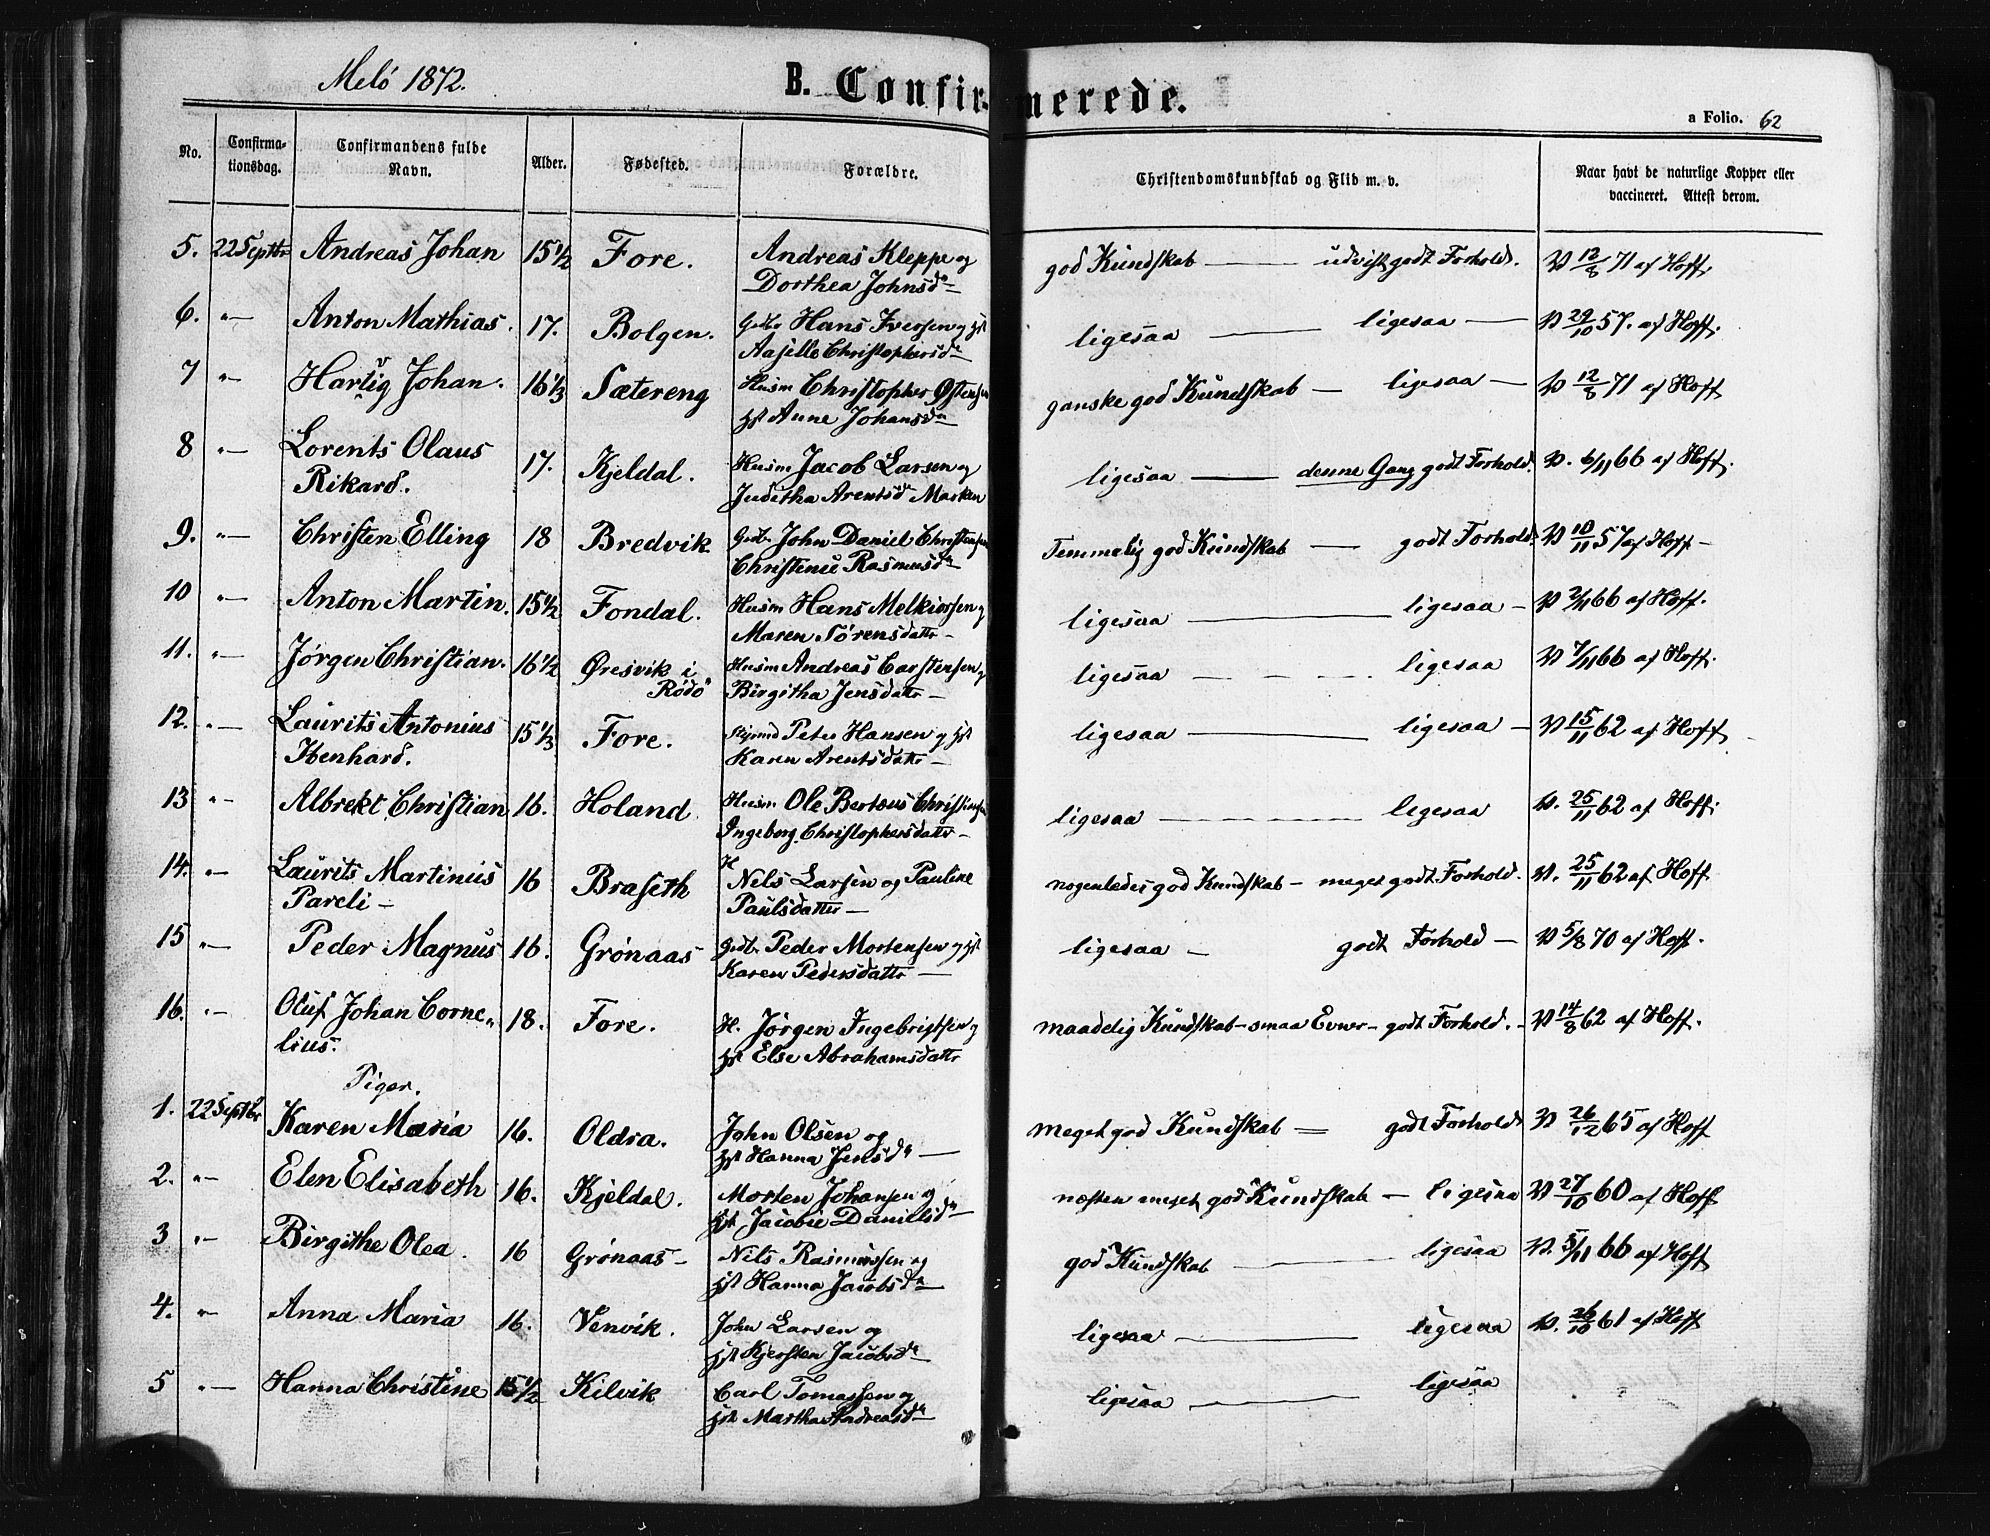 Melö 1872.
B. Confirmerede.
a Folio. 62
No. Confirmationsdag. Confirmandens fulde Navn. Alder. Fødested. Forældre. Christendomskundskab og Flid m. v. Naar havt de naturlige Kopper eller vaccineret. Attest derom.
5. 22 Septbr Andreas Johan 15 1/2 Fore. Andreas Kleppe og god Kundskab — udvist godt Forhold. V 12/8 71 af Hoff.
Dorthea Johnsd.—
6. "— Anton Mathias. 17. Bolgen. Gdbr Hans Iversen og hst ligesaa — ligesaa — V 29/10 57. af Hoff.
Aasille Christophersd.—
7 "— Hartvig Johan. 16 1/3 Sætereng Husm Christopher Østensen ganske god Kundskab — ligesaa — V 12/8 71 af Hoff
hst Anne Johansd.—
8 "— Lorents Olaus 17. Kjeldal. Husm Jacob Larsen og ligesaa — denne Gang godt Forhold. V. 6/11 66 af Hoff.
Rikard. Juditha Arentsd. Marken
9. "— Christen Elling 18 Bredvik Gdbr John Daniel Christensen Temmelig god Kundskab — godt Forhold. V 10/11 57 af Hoff —
Christense Rasmusd.
10 "— Anton Martin. 15 1/2 Fondal. Husm Hans Melkiorsen og ligesaa — ligesaa — V 2/11 66 af Hoff.
Maren Sörensdattr —
11. "— Jørgen Christian. 16 1/2 Øresvik i Husm Andreas Carstensen og ligesaa — ligesaa V 7/11 66 af Hoff.
Rödö Birgitha Jensdattr —
12. "— Laurits Antonius 15 1/3 Fore. Peter Hansen og hst ligesaa — ligesaa — V 15/11 62 af Hoff.
Ibenhard. Karen Arentsdattr —
13 "— Albrekt Christian 16. Holand Husm Ole Berteus Christensen ligesaa — ligesaa V. 25/11 62 af Hoff.
Ingeborg Christophersdattr —
14. "— Laurits Martinus 16 Braseth H Nels Larsen og Pauline nogenledes god Kundskab — meget godt Forhold. V. 25/11 62 af Hoff
Pareli — Paulsdatter —
15 "— Peder Magnus 16. Grönaas Gdbr Peder Mortensen og hst ligesaa — godt Forhold — V 5/8 70 af Hoff.
Karen Pedersdattr —
16. "— Oluf Johan Corne„ 18. Fore. H. Jörgen Ingebrigtsen og maadelig Kundskab — smaa Evner — godt Forhold. — V 14/8 62 af Hoff.
lius. hst Else Abrahamsdattr
Piger.
1. 22 Septbr Karen Maria 16. Oldra. John Olsen og meget god Kundskab — godt Forhold V 26/12 65 af Hoff
hst Hanna Jensd. —
2. "— Elen Elisabeth 16. Kjeldal. Morten Johansen og næsten meget god Kundskab — ligesaa V 27/10 60 af Hoff
hst Jacobie Danielsd.—
3 "— Birgithe Olea. 16 Grönaas — Nils Rasmussen og god Kundskab — ligesaa V. 5/11 66 af Hoff
hst Hanna Jacobsd.—
4. "— Anna Maria 16. Venvik. John Larsen og ligesaa — ligesaa V. 26/10 61 af Hoff
hst Kjersten Jacobsd.—
5 "— Hanna Christine 15 1/2 Kilvik Carl Tomassen og ligesaa — ligesaa
hst Martha Andreasd.—